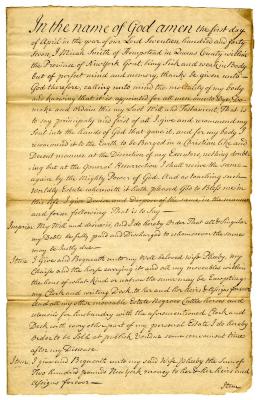 In the name of God amen the first day
of April in the year of our Lord Seventeen hundred and forty
Seven, I Micah Smith of Hempstead in Queens County within
the Province of New York Gent. being Sick and weak in Body
but of perfect mind and memory, thanks be given unto
God therefore, calling unto mind the mortality of my body
and knowing that it is appointed for all men once to Dye do
make and ordain this my last Will and Testament That is
to say principaly and first of all I give and recommend my
Soul into the hands of God that gave it, and for my body I
recommend it to the Earth to be Buryed in a Christian like and
Decent manner at the Discretion of my Executors nothing doubt-
ing but at the General Resurrection I shall receive the same
again by the Mighty Power of God. And as touching such
Worldly Estate wherewith it hath pleased God to Bless me in
this life I give Devise and Dispose of the same in the manner
and form following That is to Say
Imprimis, My Will and desire is, and I do hereby Order That all & Singular
my Debts be fully paid and Discharged to whomsoever the same
may be Justly due.
Item I give and Bequeath unto my Well beloved wife Phebe, my
Chaise and the horse carrying it and all my moveables within
the house of what kind or nature the same may be Excepting
my Clock and writing Desk to her and her heirs & assigns forever
And all my other moveable Estate Negroes Cattle horses and
utensils for husbandry with the aforementioned Clock and
Desk with every other part of my personal Estate I do hereby
order to be Sold at publick Vendue some convenient time
after my Decease.
Item I give and Bequeath unto my said Wife Phebe the Sum of
Two hundred pounds New York money to her & her Heirs and
assigns forever
Item